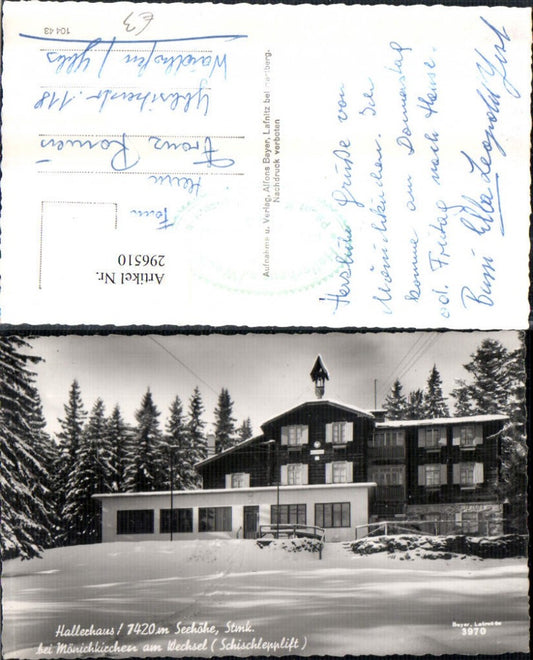 Herzliche Grüße von
Mönichkirchen. Ich
komme am Donnerstag
od. Freitag nach Hause.
Bussi Ella Leopold
Aufnahme u. Verlag, Alfons Beyer, Lafnitz bei
Nachdruck verboten
Herrn
Franz
Ybbsitzerstr. 118
Waidhofen / Ybbs
10443
€3
Artikel Nr.
296510
Hallerhaus! 1420 m Seehöhe, Stmk.
bei Mönichkirchen am Wechsel (Schischlepplift)
Beyer, Lafnitz
3970